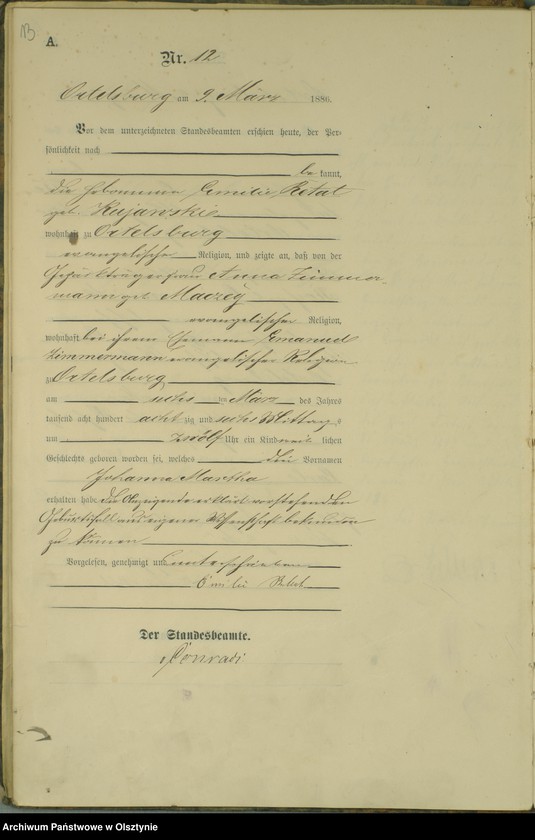 13
A.
Nr. 12
Ortelsburg am 9. März 1886.
Vor dem unterzeichneten Standesbeamten erschien heute, der Per-
sönlichkeit nach
be kannt,
die Hebamme Emilie Rekat
geb. Kujawski
wohnhaft zu Ortelsburg
evangelischer Religion, und zeigte an, daß von der
Gepäckträgerfrau Anna Zimmer-
mann geb. Maczey
evangelischer Religion,
wohnhaft bei ihrem Ehemann Emanuel
Zimmermann evangelischer Religion
zu Ortelsburg
am sechs ten März des Jahres
tausend acht hundert acht zig und sechs Mittags
um zwölf Uhr ein Kind weib lichen
Geschlechts geboren worden sei, welches die Vornamen
Johanna Martha
erhalten habe. Die Anzeigende erklärt vorstehenden
Geburtsfall aus eigener Wissenschaft bekunden
zu können
Vorgelesen, genehmigt und unterschrieben
Emilie Rekat
Der Standesbeamte.
Conradi
Archiwum Państwowe w Olsztynie